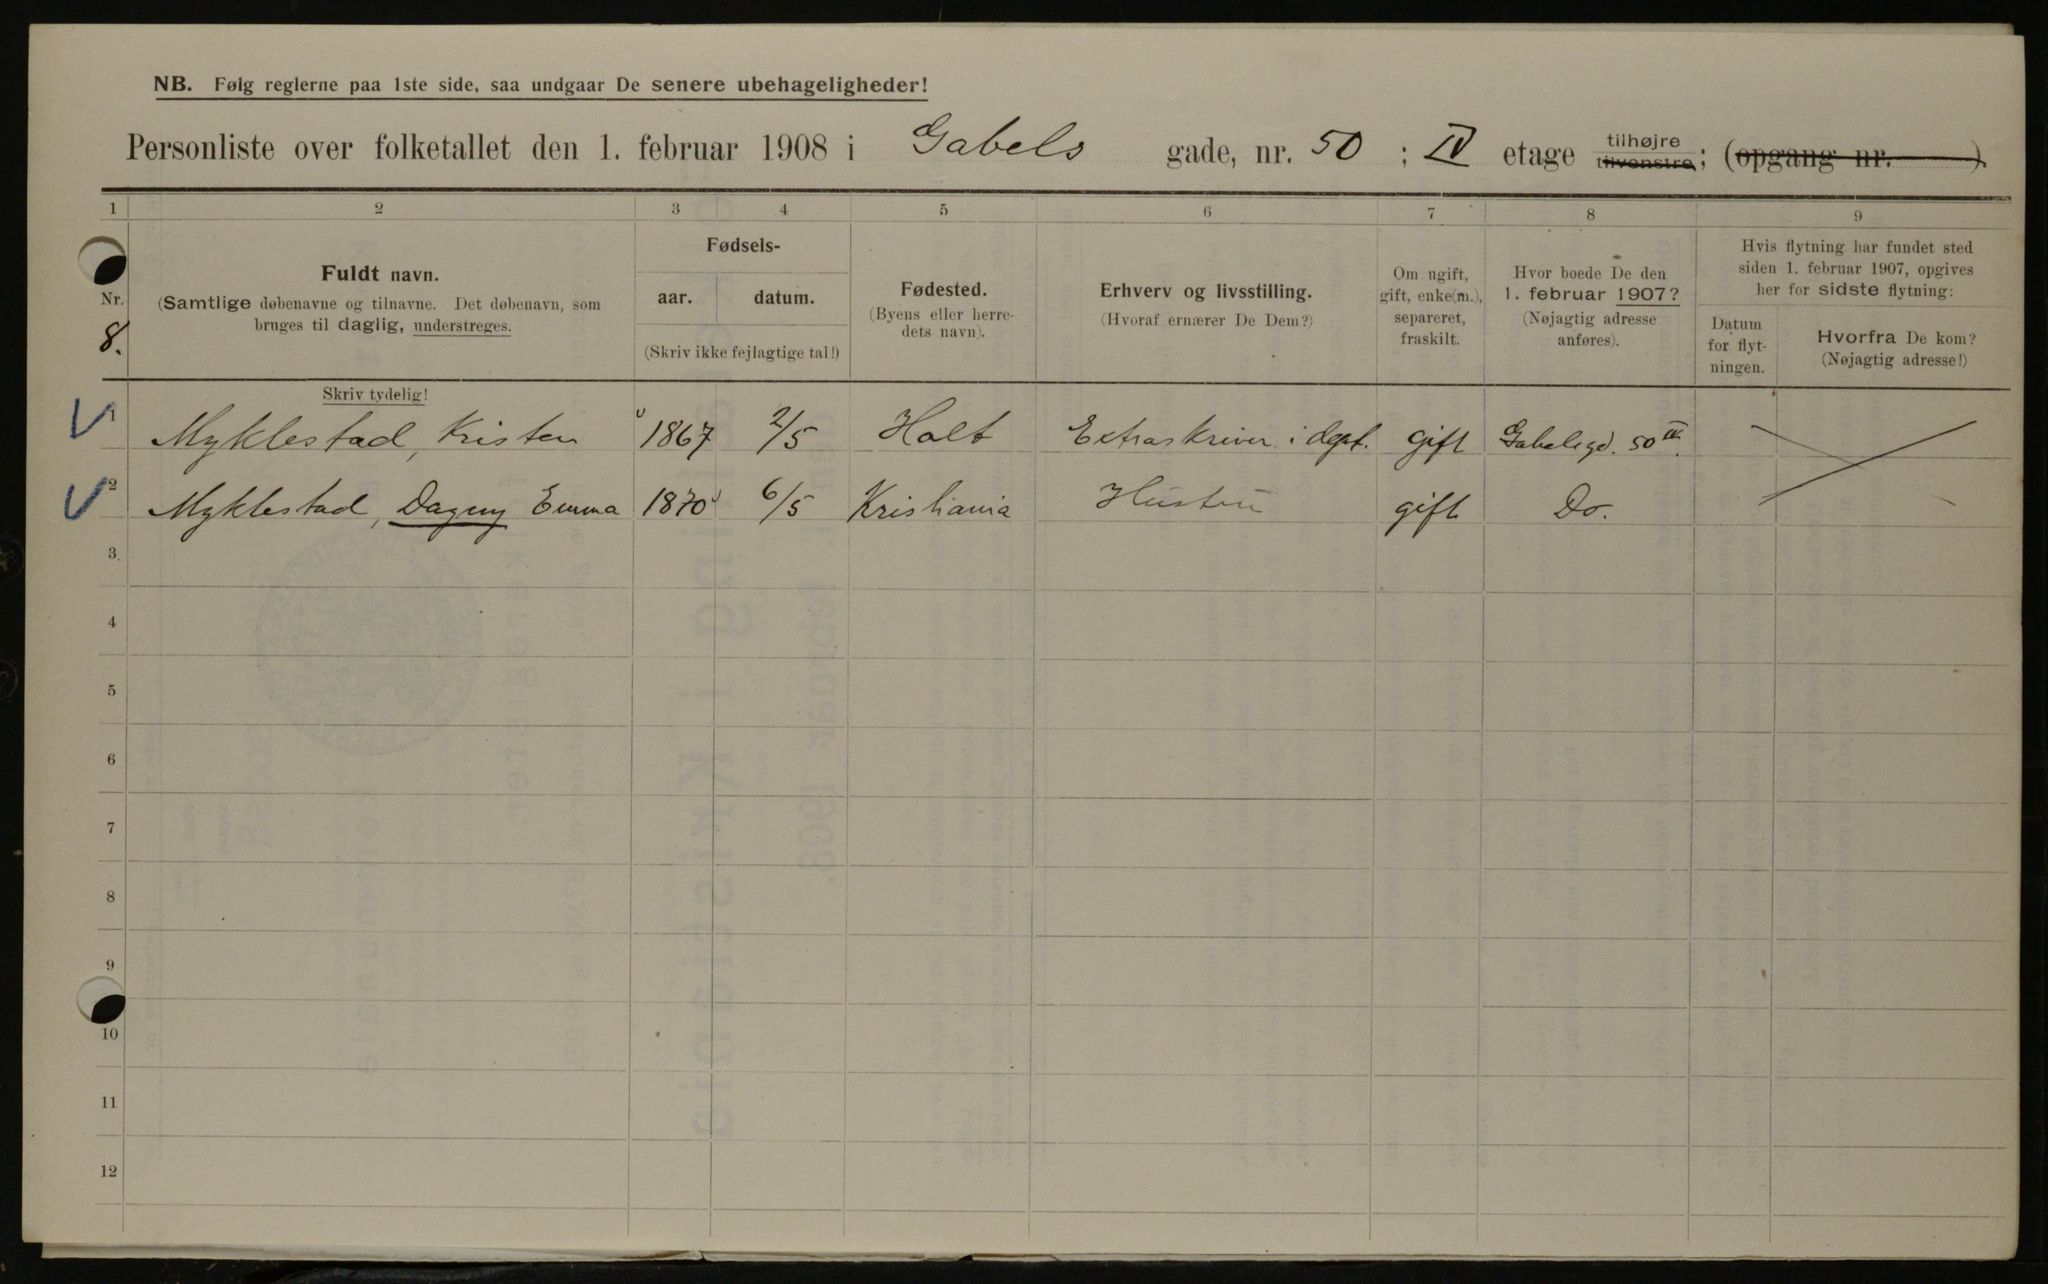 NB. Følg reglerne paa 1ste side, saa undgaar De senere ubehageligheder!
Personliste over folketallet den 1. februar 1908 i Gabels gade, nr. 50 ; IV etage tilhøjre tilvenstre; (opgang nr. )
1 2 3 4 5 6 7 8 9
Nr.
8.
Fuldt navn.
(Samtlige døbenavne og tilnavne. Det døbenavn, som
bruges til daglig, understreges.
Skriv tydelig!
Fødsels-
aar. datum.
(Skriv ikke fejlagtige tal!)
Fødested.
(Byens eller herre-
dets navn).
Erhverv og livsstilling.
(Hvoraf ernærer De Dem?)
Om ugift,
gift, enke(m.),
separeret,
fraskilt.
Hvor boede De den
1. februar 1907?
(Nøjagtig adresse
anføres).
Hvis flytning har fundet sted
siden 1. februar 1907, opgives
her for sidste flytning:
Datum
for flyt-
ningen.
Hvorfra De kom?
(Nøjagtig adresse!)
1 Myklestad, Kristen 1867 2/5 Holt Extraskriver i dept. gift Gabelsgd. 50 IV.
2 Myklestad, Dagny Emma 1870 6/5 Kristiania Hustru gift Do.
3
4
5
6
7
8
9
10
11
12